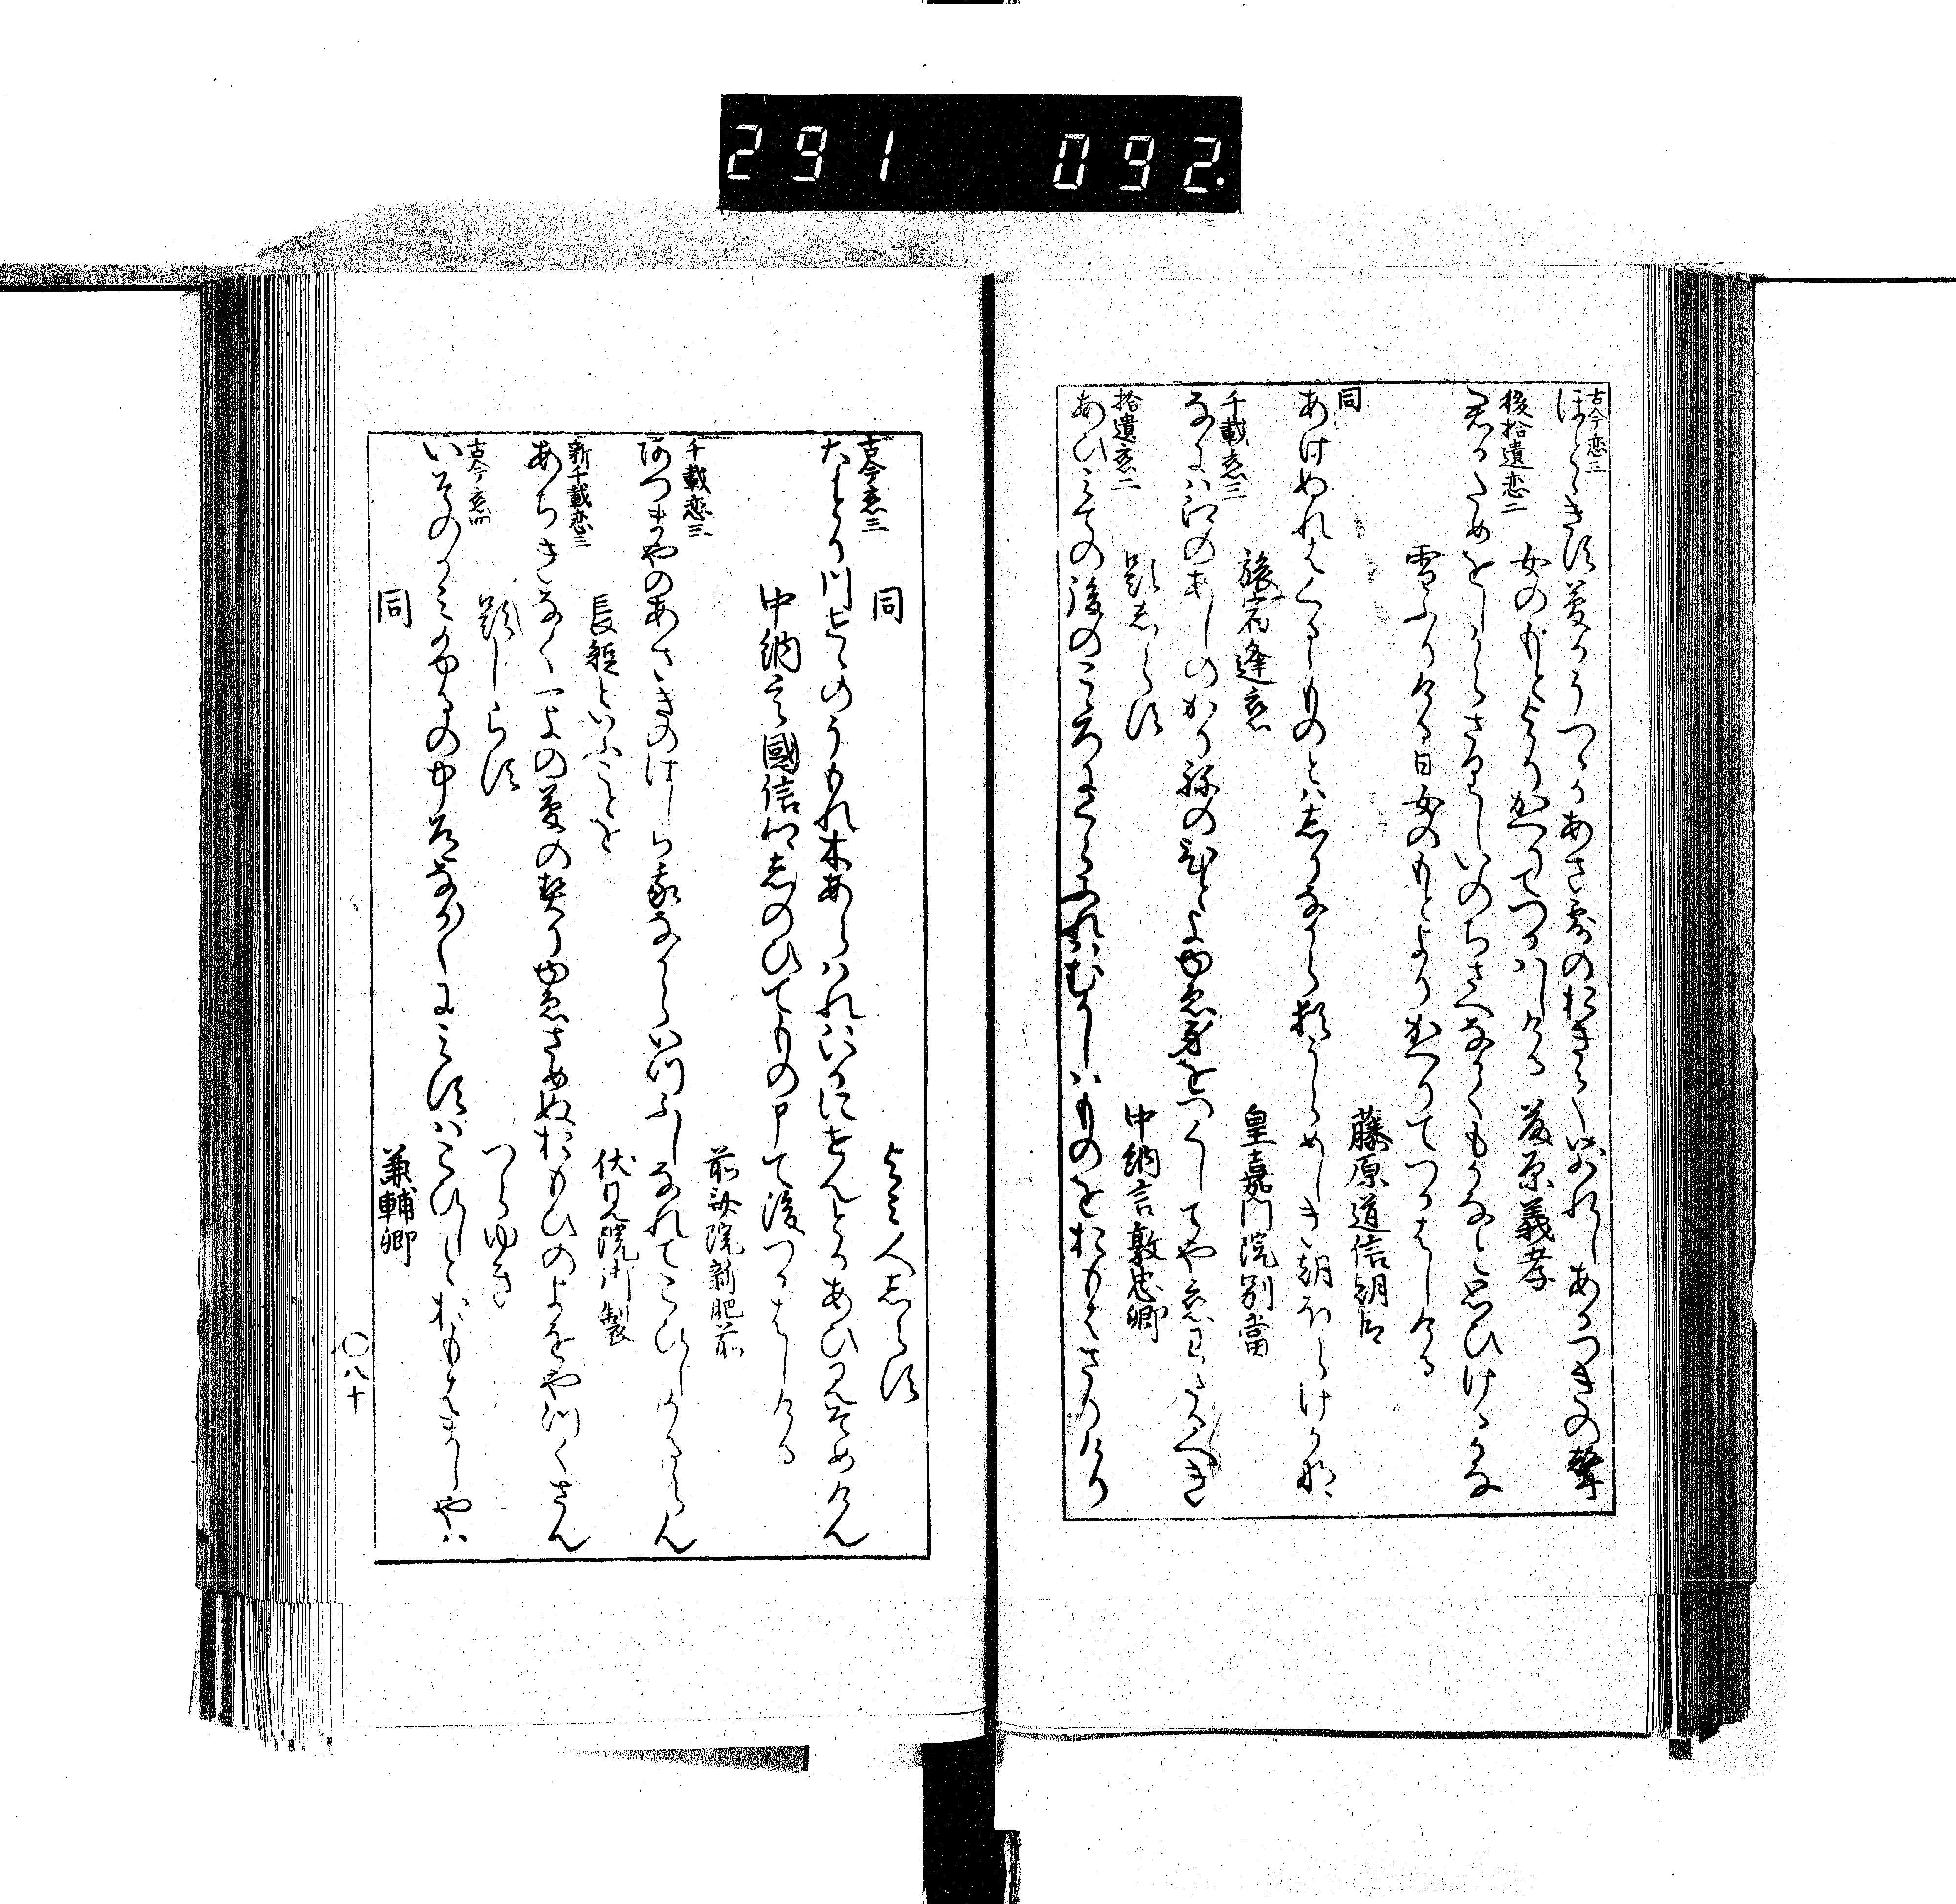 291 092.
古今恋三
ほとゝきす夢かうつゝかあさ露のおきてわかれしあかつきの聲
後拾遺恋二
女のもとよりかへりてつかはしける 藤原義孝
君かためをしからさりしいのちさへなかくもかなと思ひけるかな
雪ふりける日女のもとよりかへりてつかはしける
同 藤原道信朝臣
あけぬれはくるゝものとはしりなから猶うらめしき朝ほらけかな
千載恋三
旅宿逢恋 皇嘉門院別當
なにはえのあしのかりねのひとよゆゑ身をつくしてや恋わたるへき
拾遺恋二
題しらす 中納言敦忠卿
あひみての後のこゝろにくらふれはむかしはものをおもはさりけり
古今恋三
同 よみ人しらす
なとり川せゝのうもれ木あらはれはいかにせんとかあひみそめけん
中納言國信卿しのひてもの申て後つかはしける
千載恋三
前斎院新肥前
あつまやのあさきのはしら我なからいつふしなれてこひしかるらん
新千載恋三
長短といふことを 伏見院御製
あちきなく一よの夢の契りゆゑさめぬおもひのよをやつくさん
古今恋四
題しらす つらゆき
いそのかみふるの中道なかなかにみすはこひしとおもはましやは
同 兼輔卿
〇八十